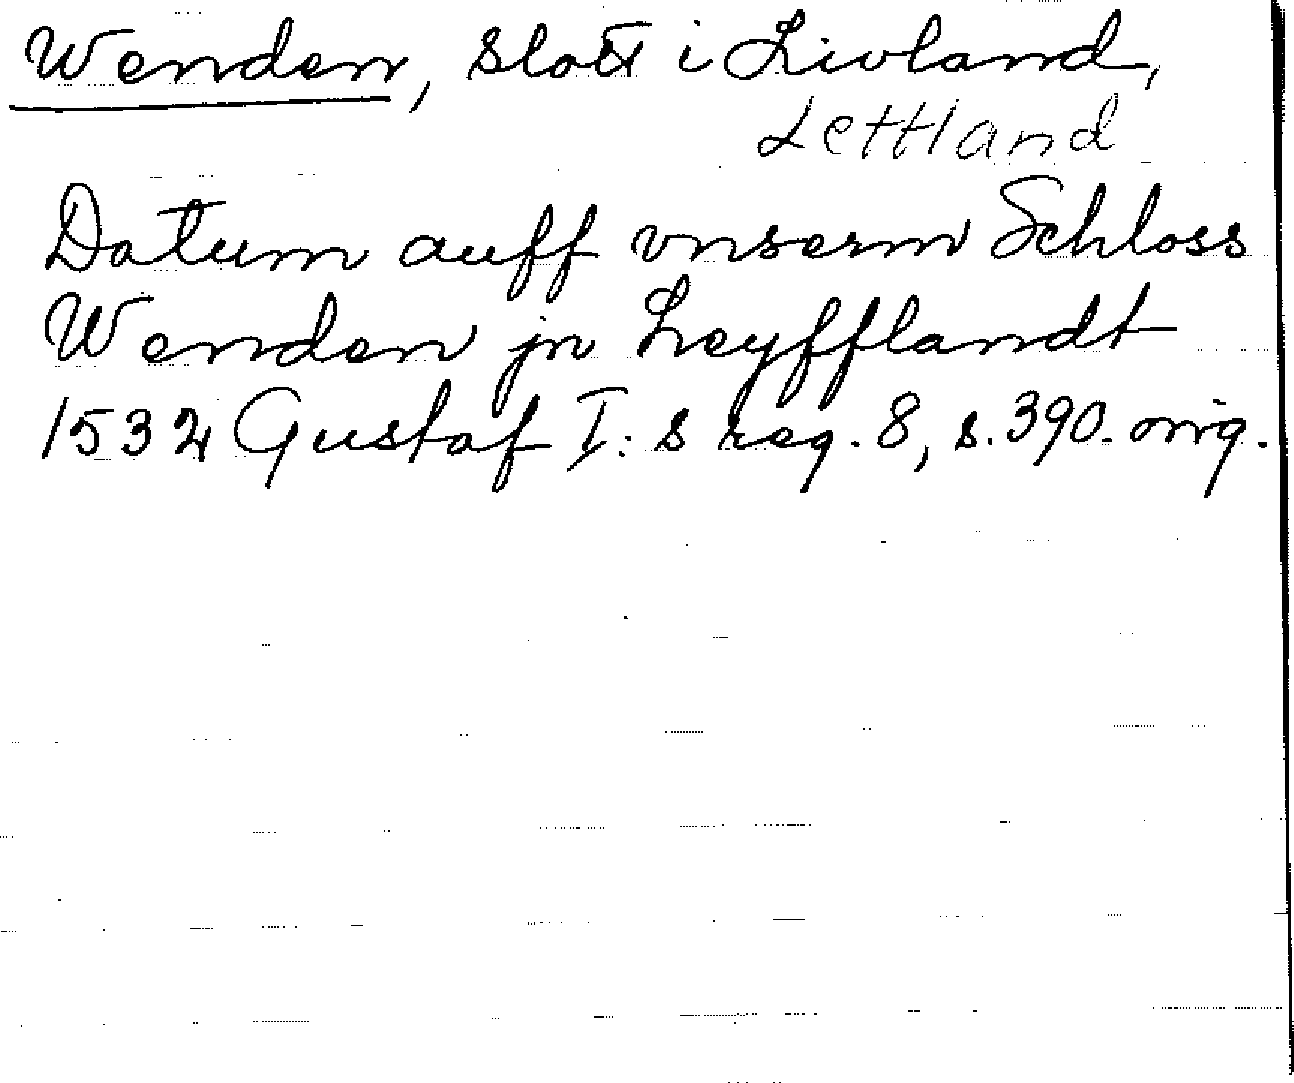 Wenden, slott i Livland,
Lettland
Datum auff vnserm Schloss
Wenden jn Leyfflandt
1532 Gustaf I:s reg. 8, s. 390. orig.